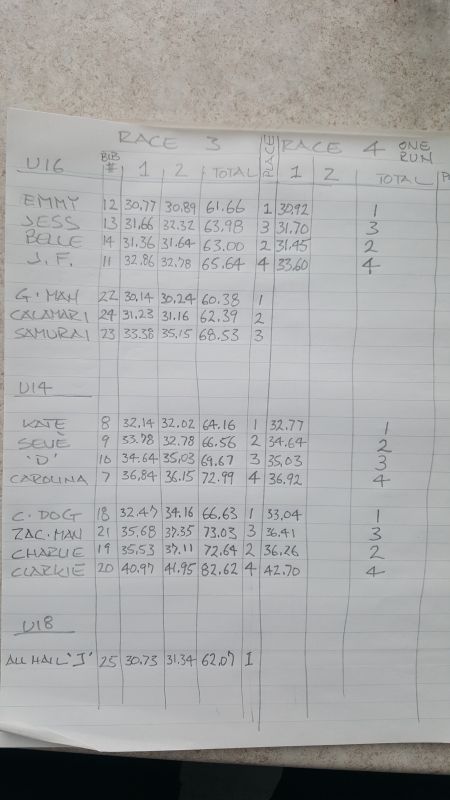 RACE 3 PLACE RACE 4 ONE RUN
U16 BIB # 1 2 TOTAL 1 2 TOTAL
EMMY 12 30.77 30.89 61.66 1 30.92 1
JESS 13 31.66 32.32 63.98 3 31.70 3
BELLE 14 31.36 31.64 63.00 2 31.45 2
J.F. 11 32.86 32.78 65.64 4 33.60 4
G.MAN 22 30.14 30.24 60.38 1
CALAMARI 24 31.23 31.16 62.39 2
SAMURAI 23 33.38 35.15 68.53 3
U14
KATE 8 32.14 32.02 64.16 1 32.77 1
SEVE 9 33.78 32.78 66.56 2 34.64 2
'D' 10 34.64 35.03 69.67 3 35.03 3
CAROLINA 7 36.84 36.15 72.99 4 36.92 4
C.DOG 18 32.47 34.16 66.63 1 33.04 1
ZAC.MAN 21 35.68 37.35 73.03 3 36.41 3
CHARLIE 19 35.53 37.11 72.64 2 36.26 2
CLARKIE 20 40.97 41.95 82.62 4 42.70 4
U18
ALL HAIL 'J' 25 30.73 31.34 62.07 1